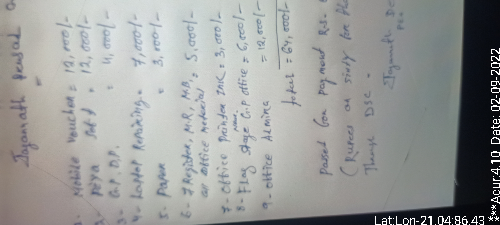 Jagannath Prasad
1- Mobile Voucher = 12,000/-
2- Priya = 12,000/-
3- G.P.D.P. = 4,000/-
4- Laptop Repairing = 7,000/-
5- Paper = 3,000/-
6- 7 Register, M.R, M.B
office material = 5,000/-
7- Office Printer INK = 3,000/-
8- Flag Stage G.P office = 6,000/-
9- office Almira = 12,000/-
Total = 64,000/-
Passed for payment Rs.
(Rupees on sixty for
Through DSC -
Lat:Lon-21.04:86.43
***Apur4.10 Date: 02-09-2022